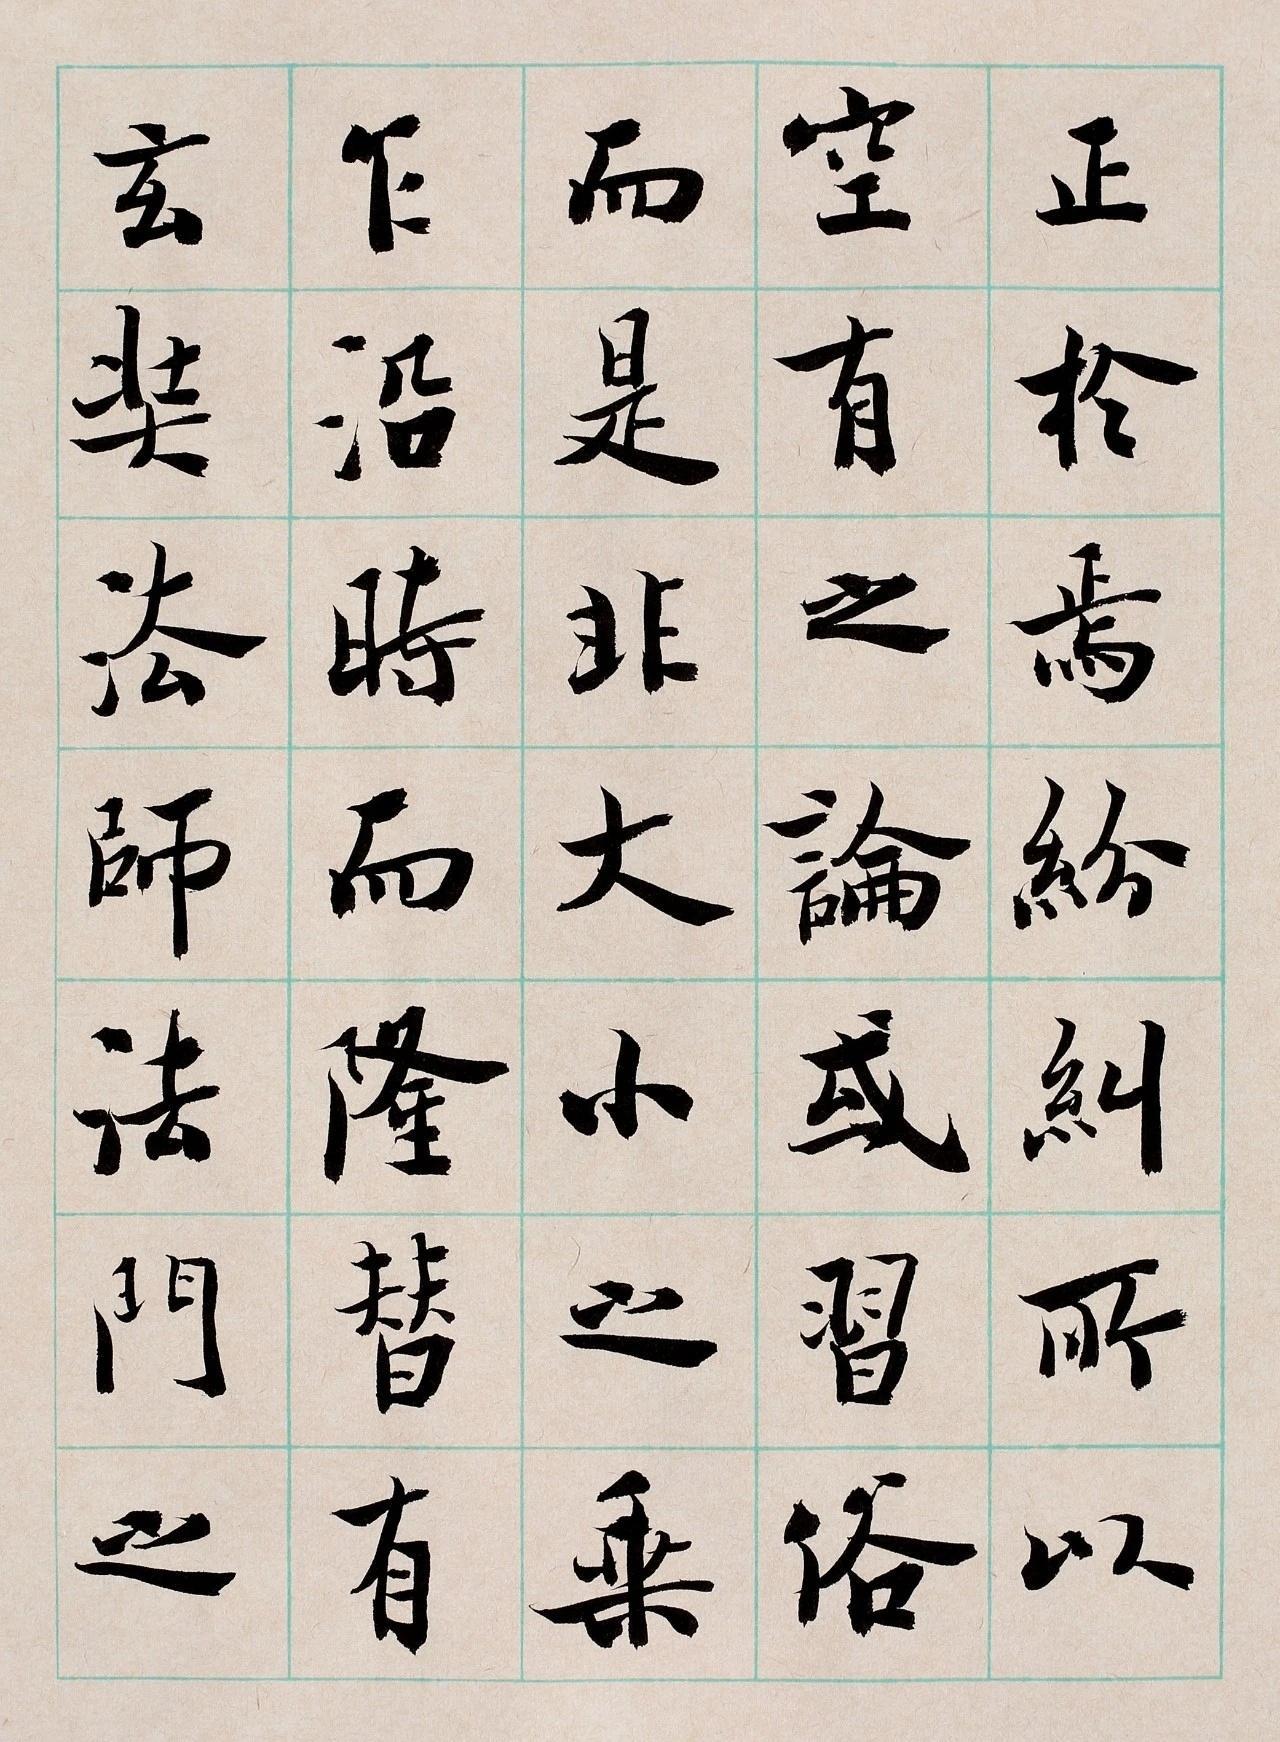 正於焉紛糾所以
空有之論或習俗
而是非大小之乘
乍沿時而隆替有
玄奘法師法門之